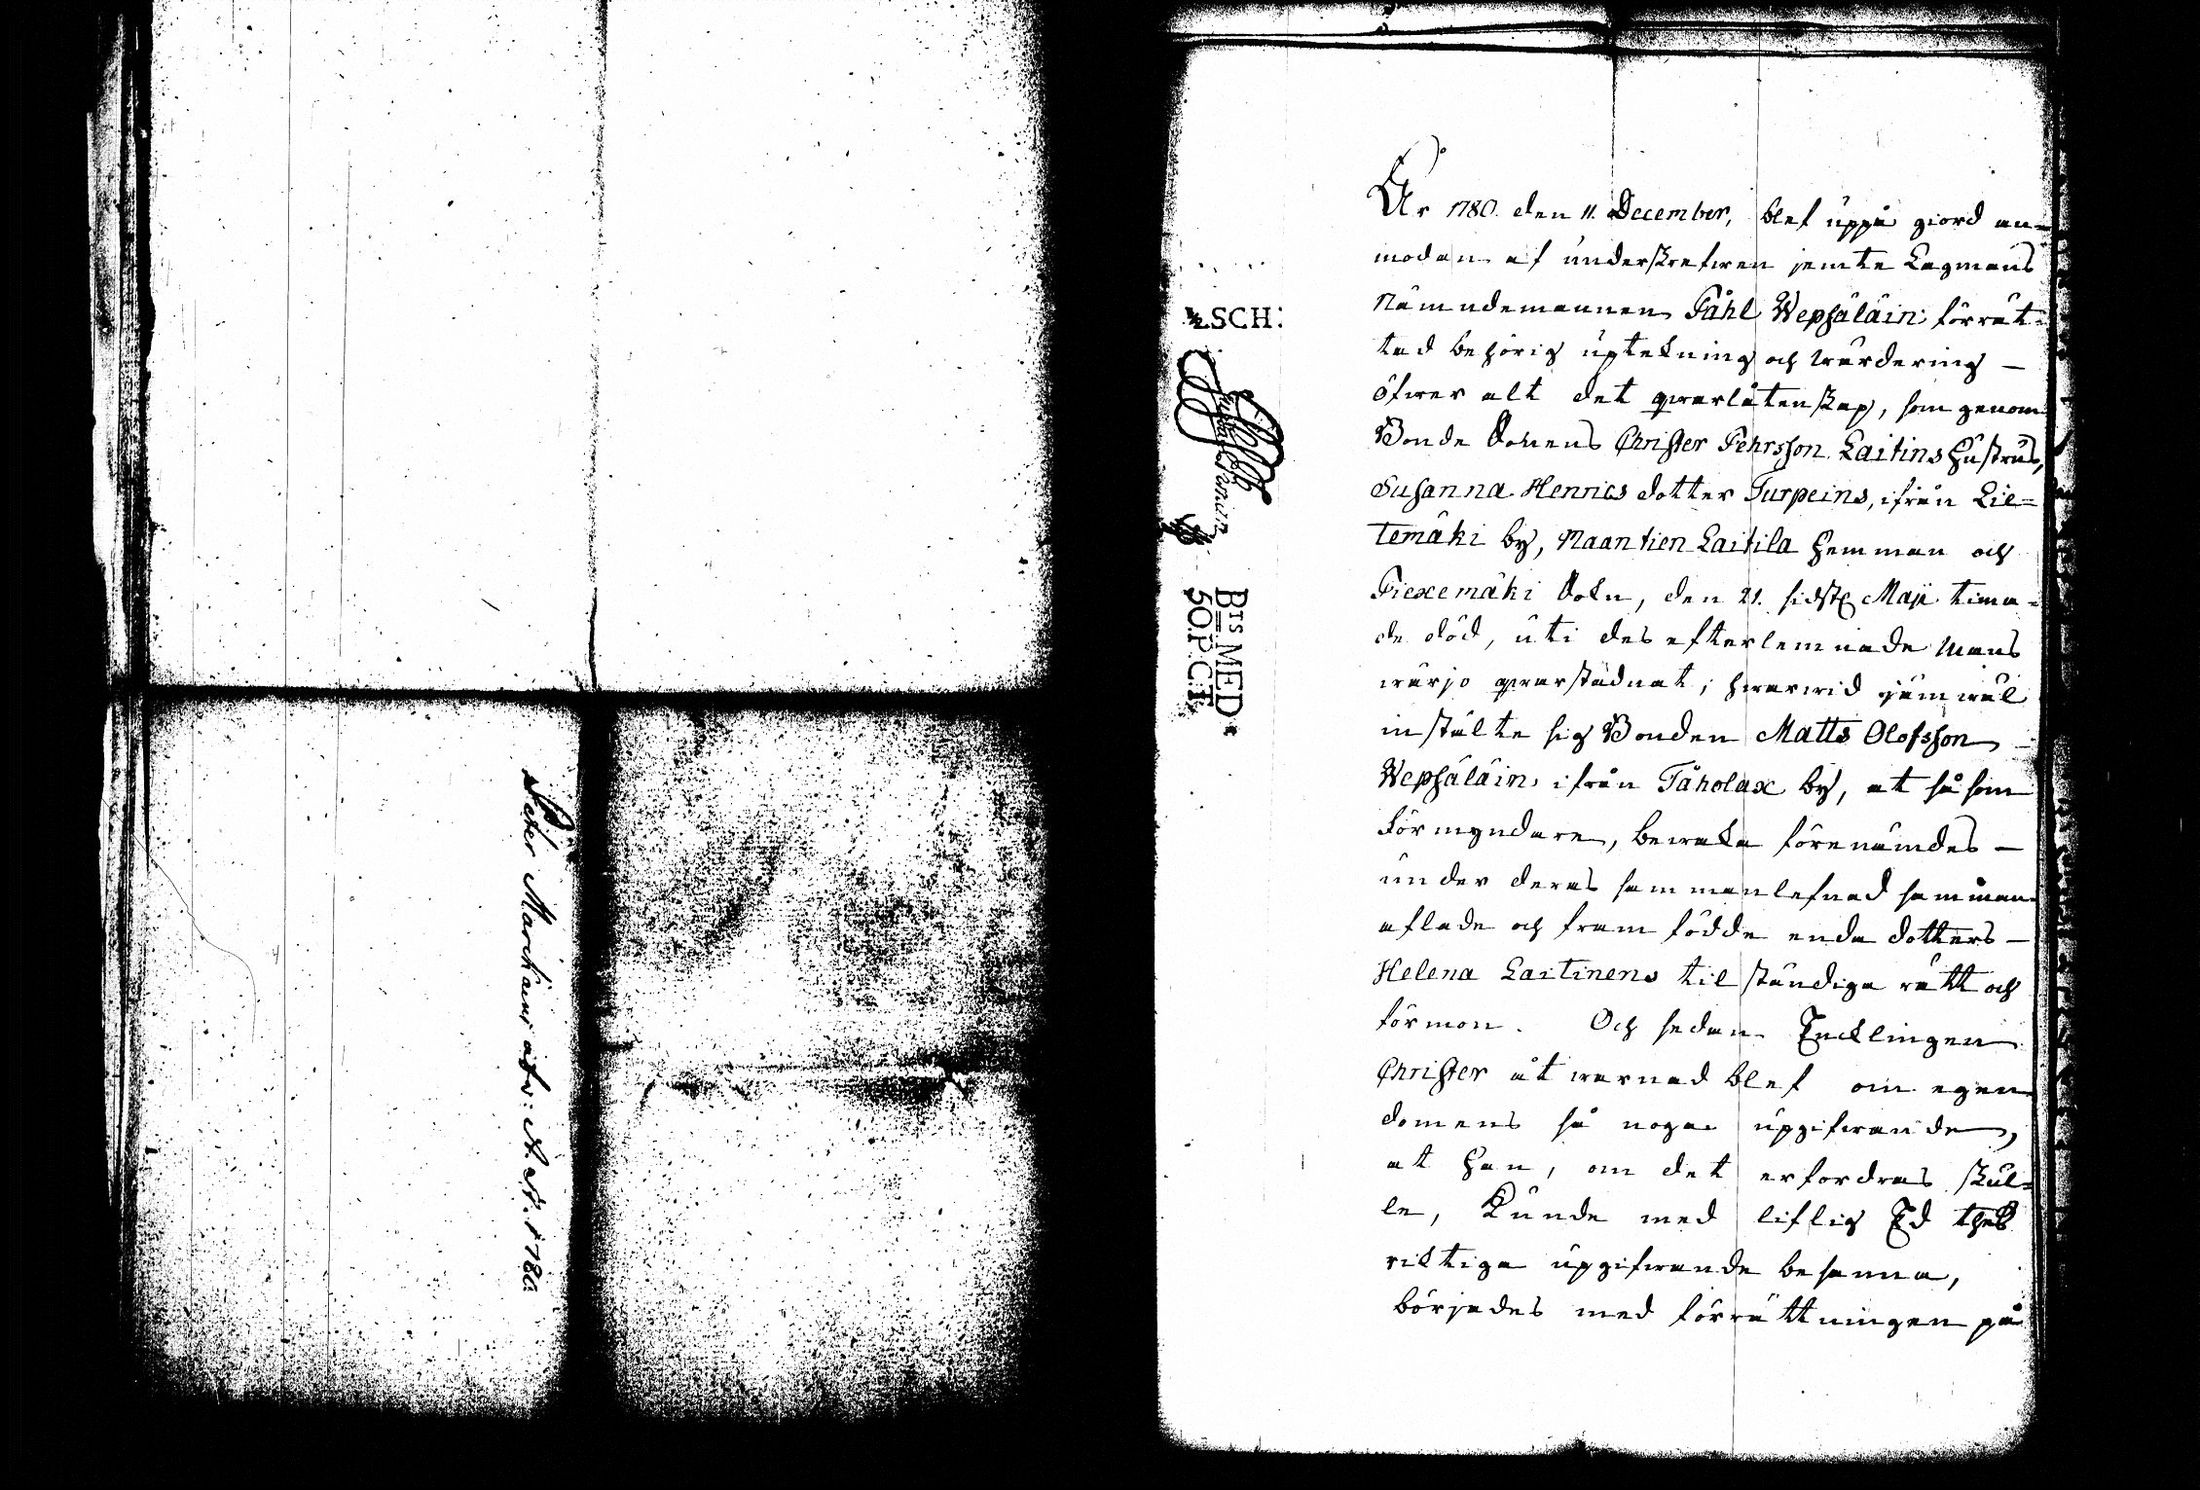 Peter Marckains afv: A. A. 1780.
½ SCH:
Brs MED
50.P:C:t.
År 1780. den 11. December, blef uppå giord an-
modan af underskrefwen jemte Lagmans
Nämndemannen Påhl Wepsäläin förrät-
tad behörig uptekning och wärdering —
öfwer alt det qwarlåtenskap, som genom
Bonde Sonens Christer Pehrsson Laitins hustrus,
Susanna Henrics dotter Turpeins, ifrån Lie-
temäki by, Naantien Laitila hemman och
Piexemäki Sokn, den 21. sidste Maji tima-
de död, uti des efterlemnade Mans
wärjo qwarstadnat; hwarwid jämwäl
instälte sig Bonden Matts Olofsson
Wepsäläin, ifrån Tåholax by, at såsom
Förmyndare, bewaka förenämdes —
under deras sammanlefnad samman
aflade och fram födde enda dotters —
Helena Laitinens tilständiga rätt och
förmon. Och sedan Encklingen
Christer åtwarnad blef om egen
domens så noga upgifwande,
at han, om det erfordras skul-
le, kunde med liflig Ed thes
riktiga upgifwande besanna,
börjades med förrättningen på